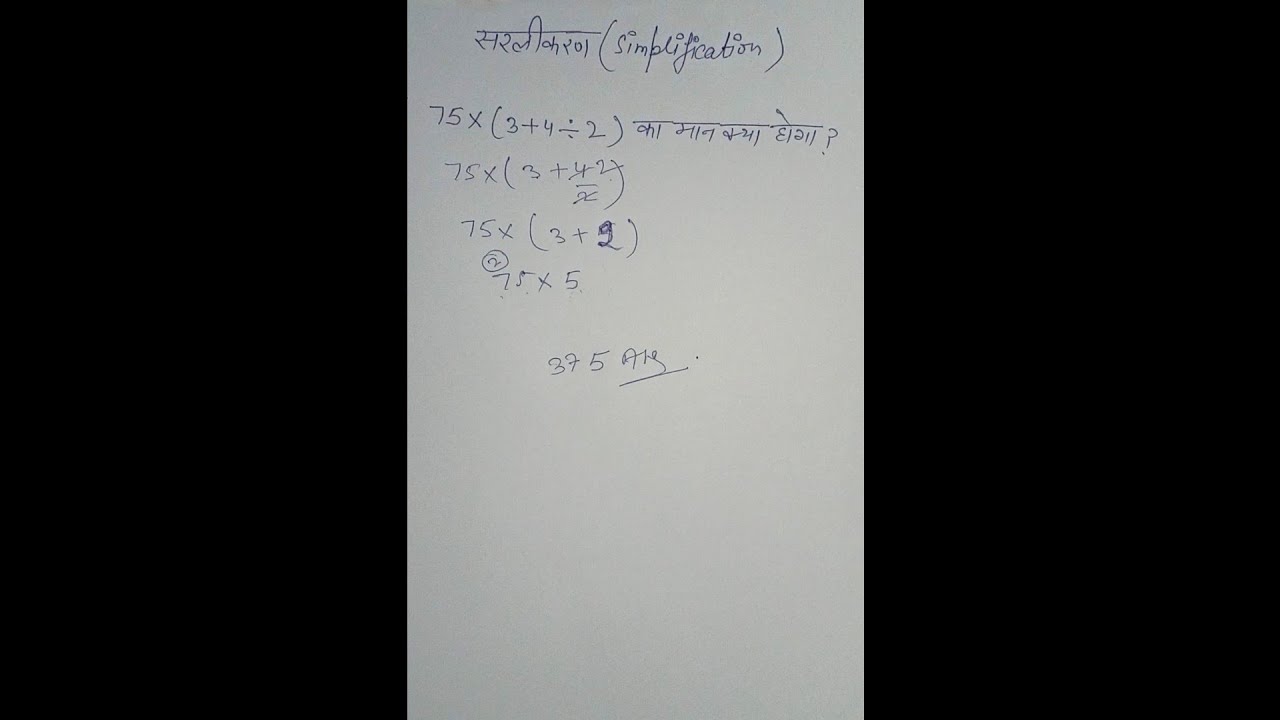 सरलीकरण (Simplification)
75×(3+4÷2) का मान क्या होगा?
75×(3+42
2)
75×(3+2)
2
75×5
375 Ans.